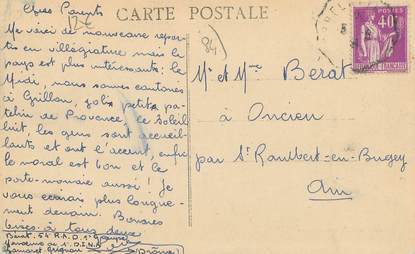 CARTE POSTALE
12€
84
Chers Parents
Me voici de nouveau repar-
tis en villégiature mais le
pays est plus intéressant : le
Midi, nous sommes cantonnés
à Grillon, joli petit pa-
telin de Provence, le Soleil
luit, les gens sont accueil-
lants et ont l'accent, enfin
le moral est bon et le
porte-monnaie aussi ! Je
vous écrirais plus longue-
ment demain. Bonnes
bises à tous deux
Bérat, 54 R.A.D.
Drôme
40c
POSTES
Mr et Mme Berat
à Oncien
par St Rambert-en-Bugey
Ain